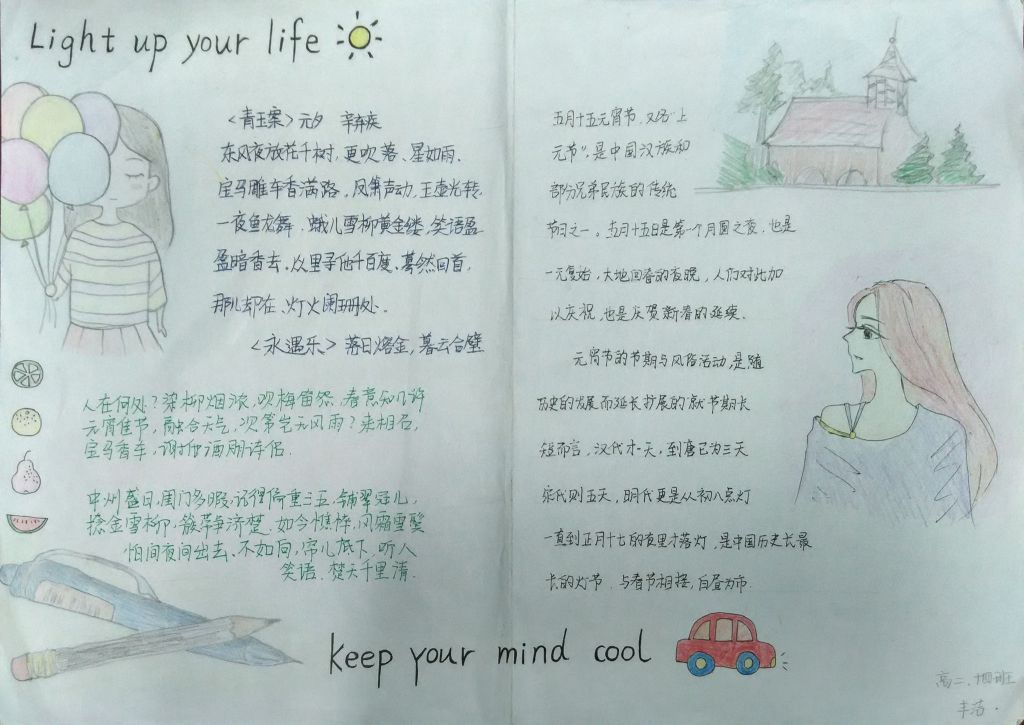 Light up your life
<青玉案>元夕 辛弃疾
东风夜放花千树,更吹落、星如雨.
宝马雕车香满路,凤箫声动,玉壶光转.
一夜鱼龙舞.蛾儿雪柳黄金缕,笑语盈
盈暗香去,众里寻他千百度、蓦然回首,
那儿却在、灯火阑珊处.
<永遇乐> 落日熔金,暮云合璧
人在何处?染柳烟浓,吹梅笛怨,春意知几许
元宵佳节,融合天气,次第岂无风雨?来相召,
宝马香车,谢他酒朋诗侣.
中州盛日,闺门多暇,记得偏重三五,铺翠冠儿,
捻金雪柳,簇带争济楚.如今憔悴,风鬟雪鬓
怕间夜间出去、不如向,帘儿底下,听人
笑语.楚天千里清.
五月十五元宵节,又名"上
元节",是中国汉族和
部分兄弟民族的传统
节日之一。五月十五日是第一个月圆之夜,也是
一元复始,大地回春的夜晚,人们对此加
以庆祝,也是庆贺新春的延续.
元宵节的节期与风俗活动,是随
历史的发展而延长扩展的就节期长
短而言,汉代才一天,到唐已为三天
宋代则五天,明代更是从初八点灯
一直到正月十七的夜里才落灯.是中国历史长最
长的灯节.与春节相接,白昼为市.
keep your mind cool
高二、十四班
丰洁.